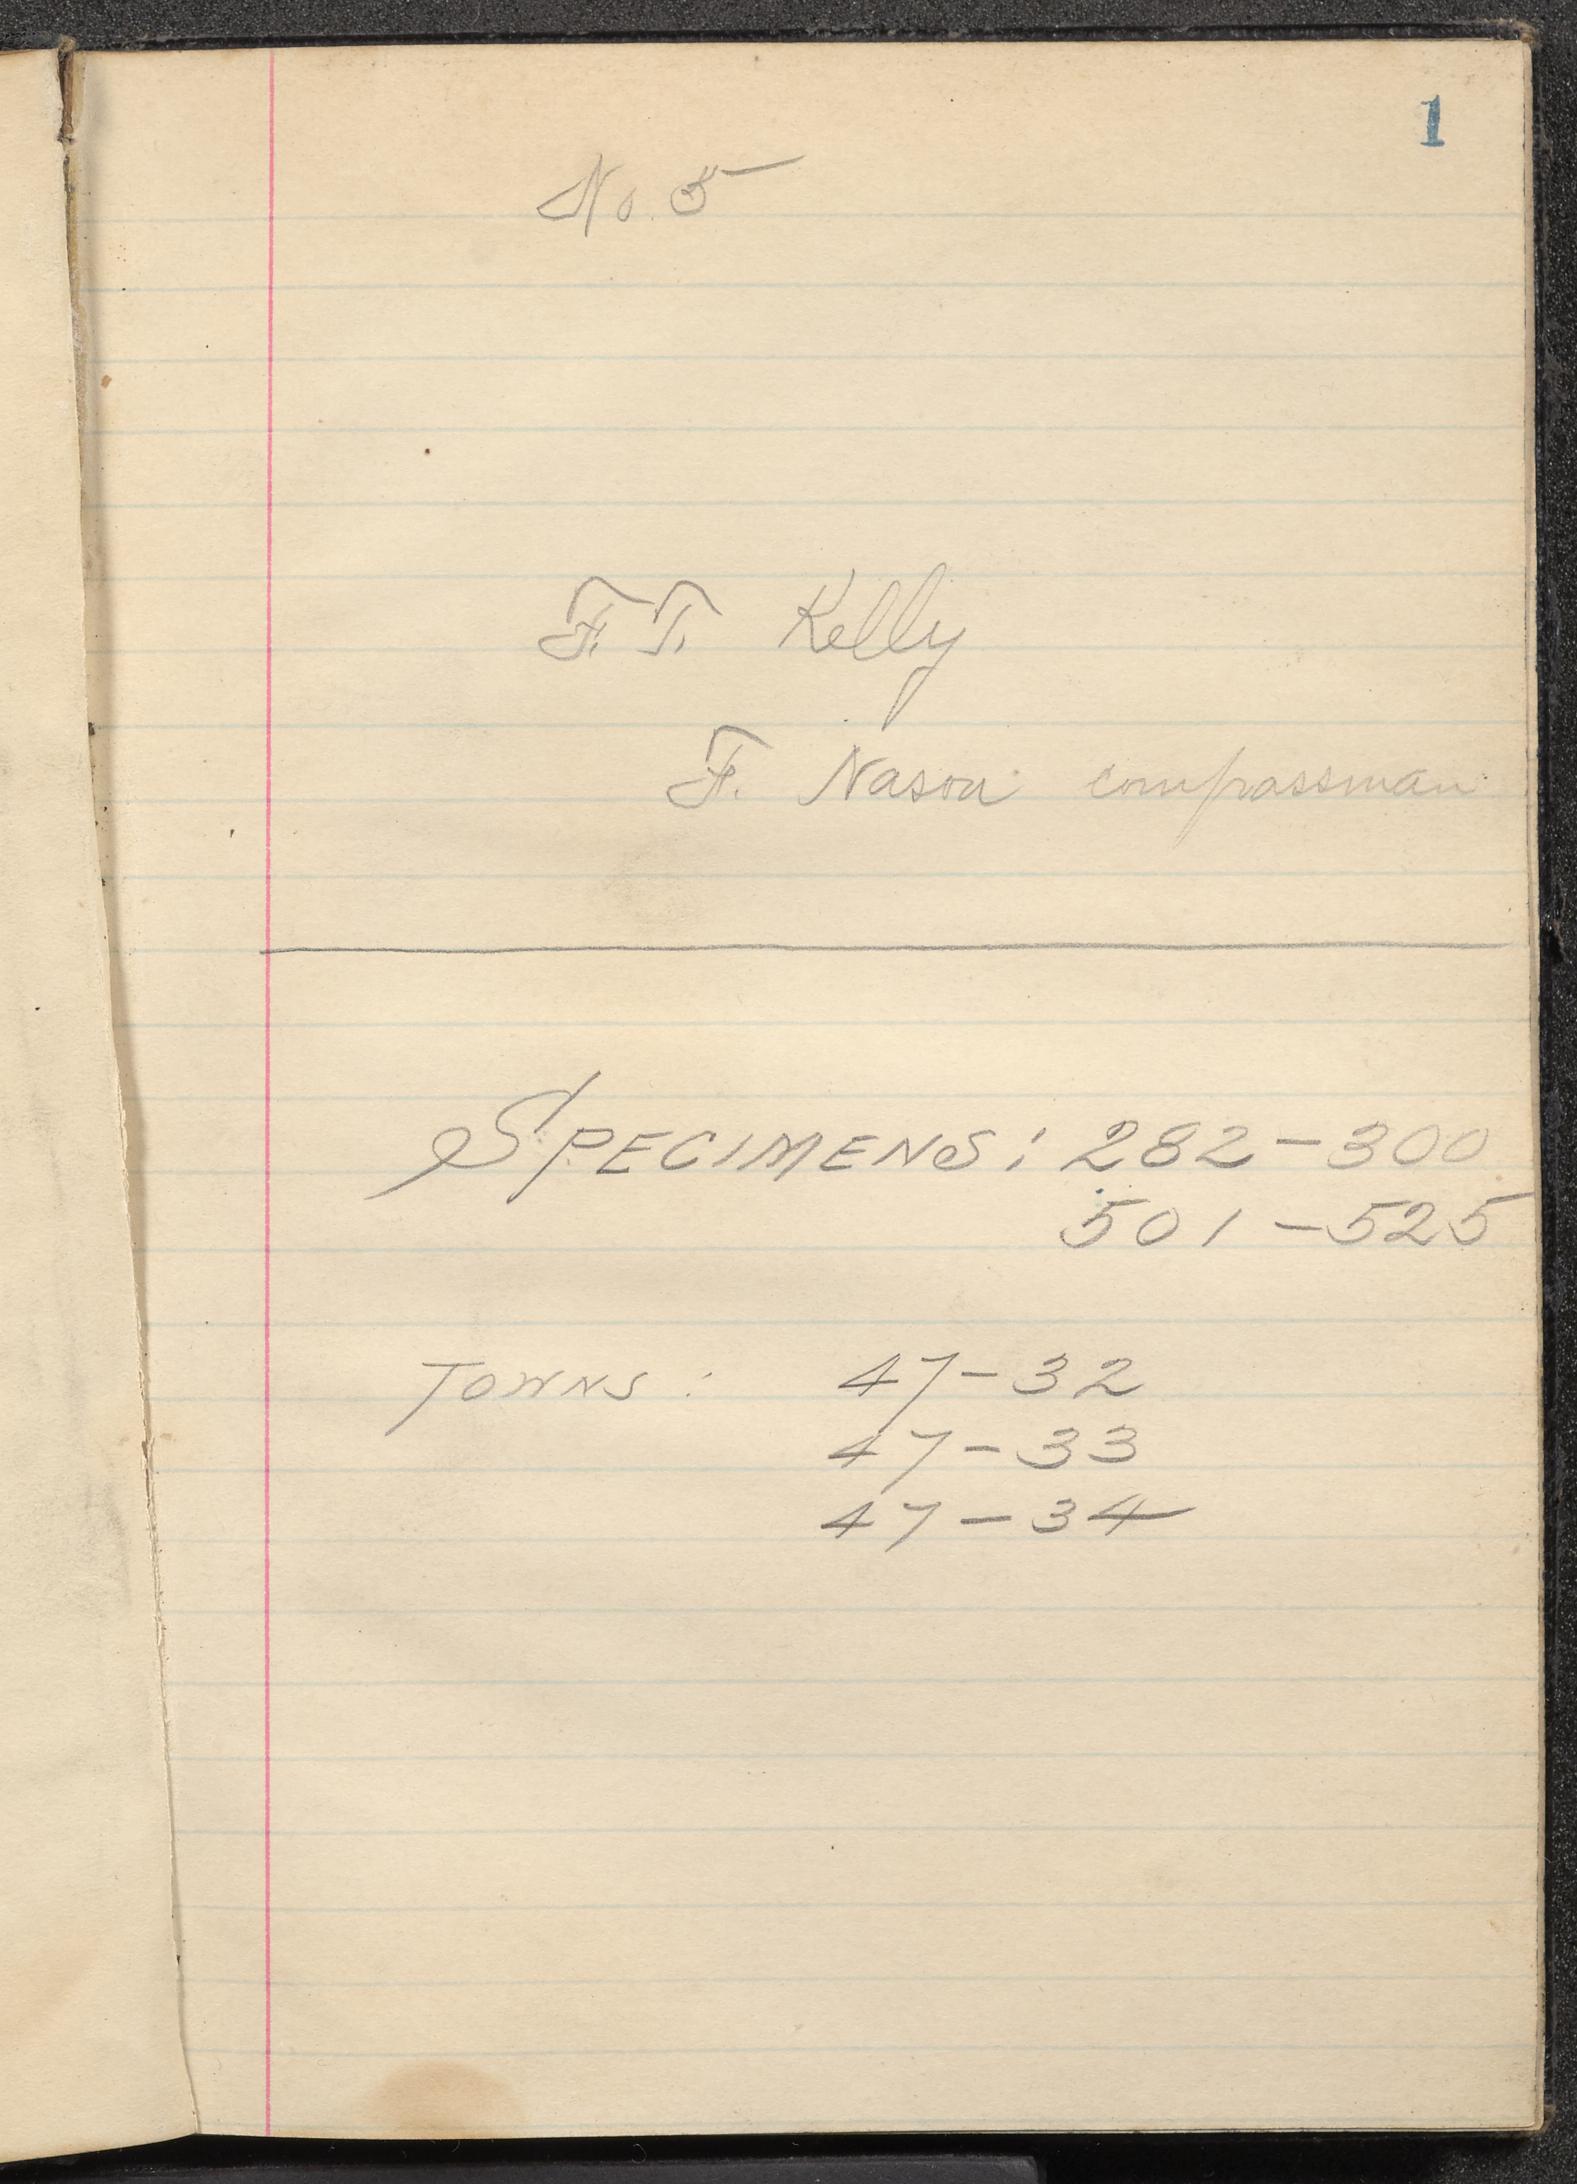 1
No. 5
F. T. Kelly
F. Nason compassman
SPECIMENS: 282-300
501-525
TOWNS: 47-32
47-33
47-34